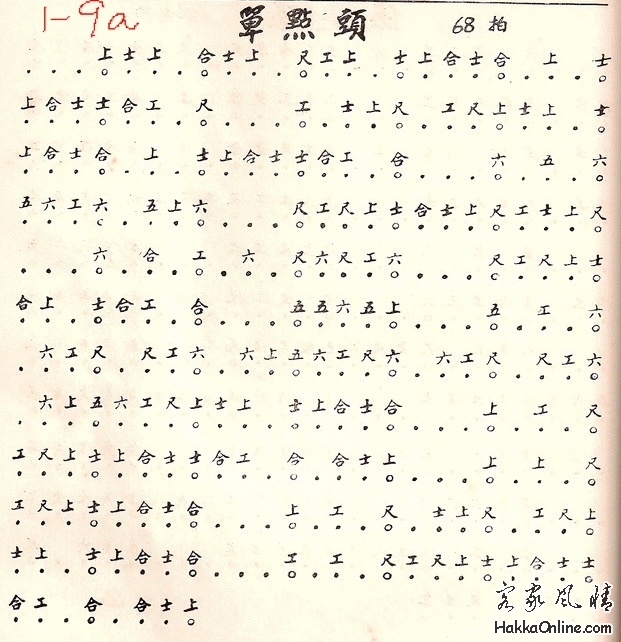 1-9a 單點頭 68拍
上士上 合士上 尺工上 士上合士合 上 士
上合士士合工 尺 工 士上尺 工尺上士上 士
上合士合 上 士上合士士合工 合 六 五 六
五六工六 五上六 尺工尺上士合士上尺工士上尺
六 合 工 六 尺六尺工六 尺工尺上士
合上 士合工 合 五五六五上 五 工 六
六工尺 尺工六 六上五六工尺六 六工尺 尺工六
六上五六工尺上士上 士上合士合 上 工 尺
工尺上士上合士士合工 合 合士上 上 上 尺
工尺上士上合士合 上 工 尺 士上尺 工尺上
士上 士上合士合 工 工 尺工尺上士上合士士
合工 合 合士上
客家风情
HakkaOnline.com